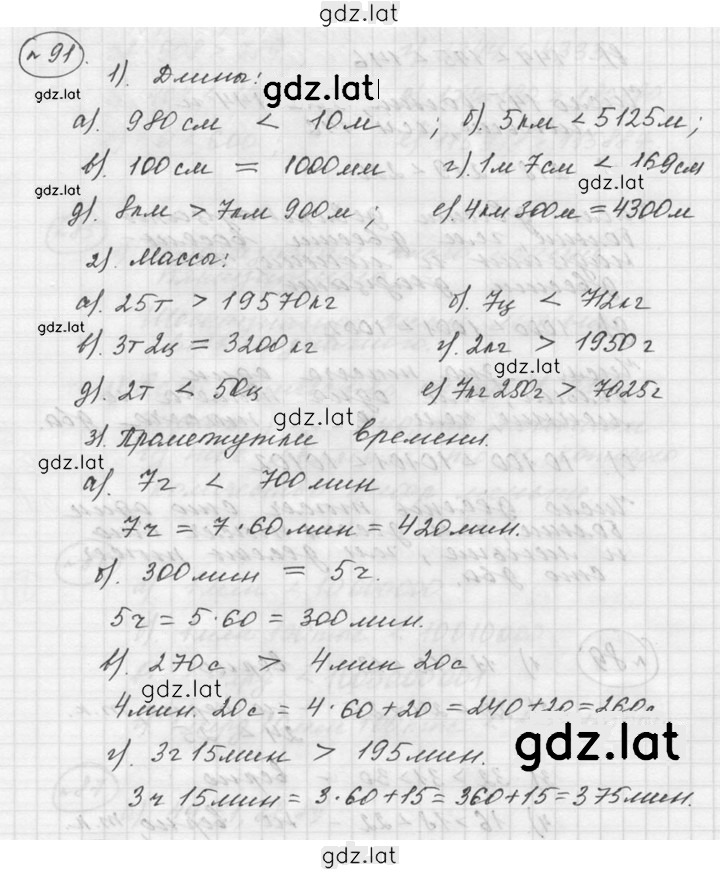 gdz.lat
№ 91.
1). Длины:
gdz.lat
gdz.lat
а). 980см < 10м ; б). 5км < 5125м;
в). 100см = 1000мм г). 1м 7см < 169см
gdz.lat
gdz.lat
д). 8км > 7км 900м; е). 4км 300м = 4300м
2). Массы:
а). 25т > 19570кг б). 7ц < 712кг
gdz.lat
в). 3т 2ц = 3200кг г). 2кг > 1950г
gdz.lat
д). 2т < 50ц е). 7кг 250г > 7025г
gdz.lat
3). Промежутки времени.
gdz.lat
а). 7г < 700мин
7ч = 7·60мин = 420мин.
б). 300мин = 5г.
5ч = 5·60 = 300мин.
в). 270с > 4мин 20с
gdz.lat
4мин. 20с = 4·60+20 = 240+20 = 260с
gdz.lat
г). 3г 15мин > 195мин.
3ч 15мин = 3·60+15 = 360+15 = 375мин.
gdz.lat